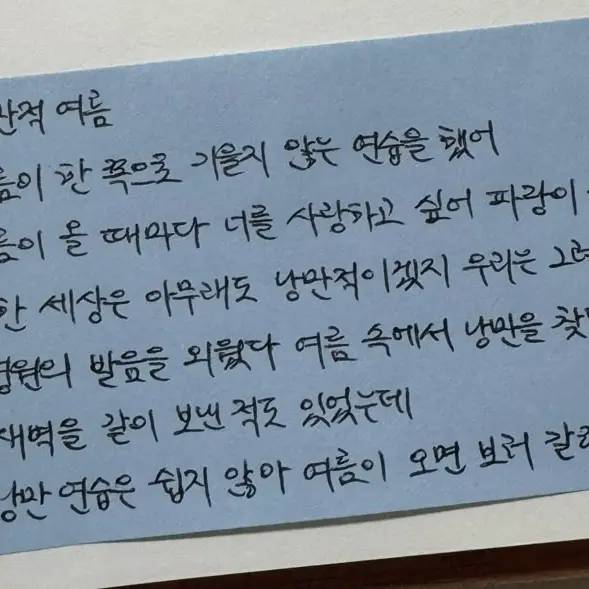 관적 여름
름이 한 쪽으로 기울지 않는 연습을 했어
름이 올 때마다 너를 사랑하고 싶어 파랑이
한 세상은 아무래도 낭만적이겠지 우리는 그러
영원의 발음을 외웠다 여름 속에서 낭만을 찾
새벽을 같이 보낸 적도 있었는데
낭만 연습은 쉽지 않아 여름이 오면 보러 갈